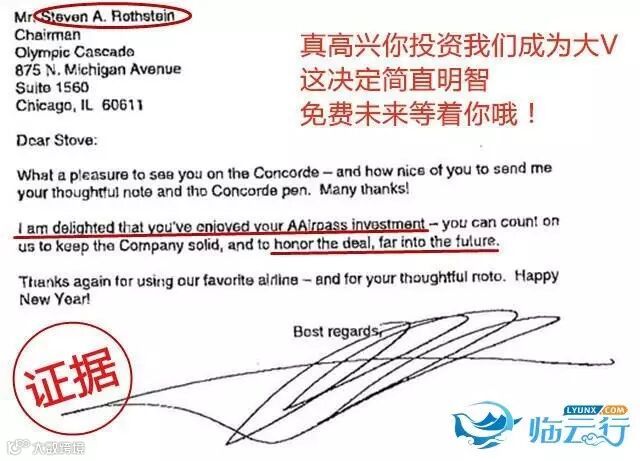 Mr. Steven A. Rothstein
Chairman
Olympic Cascade
875 N. Michigan Avenue
Suite 1560
Chicago, IL 60611
真高兴你投资我们成为大V
这决定简直明智
免费未来等着你哦！
Dear Steve:
What a pleasure to see you on the Concorde – and how nice of you to send me
your thoughtful note and the Concorde pen. Many thanks!
I am delighted that you've enjoyed your AAirpass investment – you can count on
us to keep the Company solid, and to honor the deal, far into the future.
Thanks again for using our favorite airline – and for your thoughtful note. Happy
New Year!
Best regards,
证据
LYUNX.COM
临云行
大数跨境